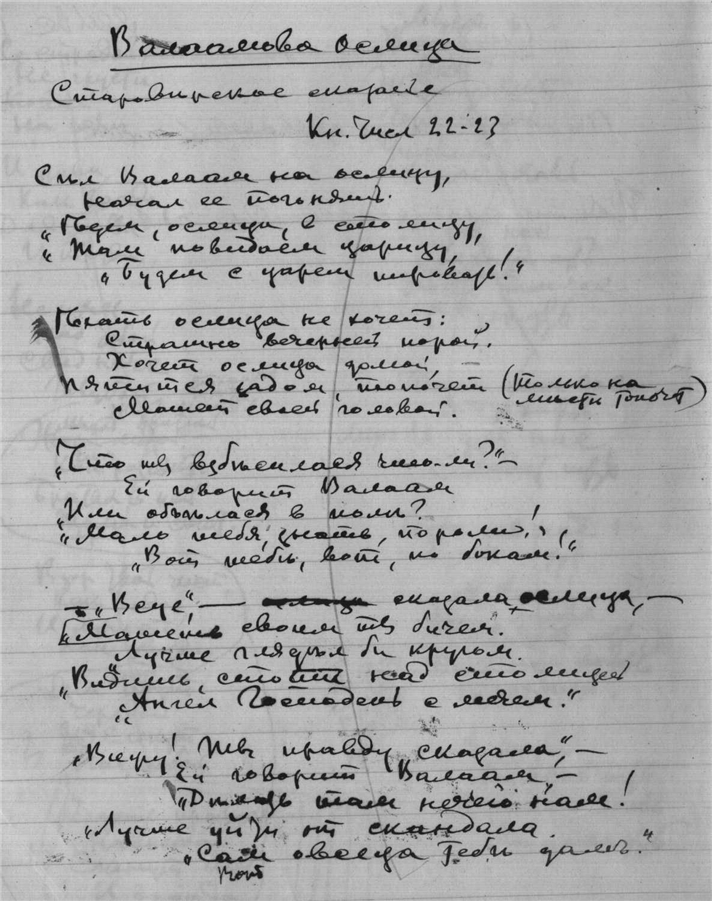 Валаамова ослица
Старовирское сказание
Кн. Числ 22-23
Сел Валаам на ослицу,
Начал ее погонять:
„Ѣдем, ослица, в столицу,
„Там повидаем царицу,
„Будем с царем пировать!“
Ѣхать ослица не хочет:
Страшно вечерней порой.
Хочет ослица домой,
Пятится задом, топочет (только на
месте топочет)
Машет своей головой.
„Что ты взбѣсилася что-ли?“ —
Ей говорит Валаам
„Или объѣлася в поле?
„Мало тебя, знать, пороли!
„Вот тебѣ, вот, по бокам!“
— „Веуе“, — сказала ослица, —
„Машешь своим ты бичем.
„Лучше глядѣл би кругом.
„Видишь, стоит над столицей
„Ангел Господень с мечем.“
„Вѣрю! Ты правду сказала“, —
Ей говорит Валаам, —
там нечего нам!
„Лучше уйти от скандала.
„Сам овсеца тебѣ дам.“
Вот